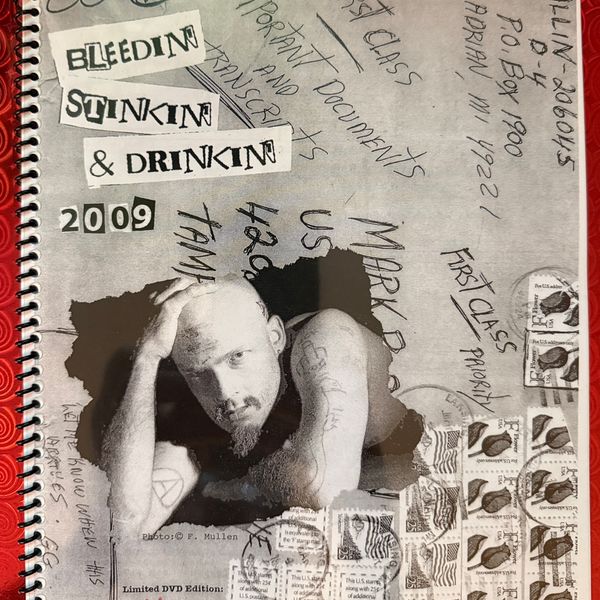 BLEEDIN'
STINKIN'
& DRINKIN'
2009
FIRST CLASS
IMPORTANT DOCUMENTS
AND
TRANSCRIPTS
ALLIN-206045
0-4
P.O. BOX 1900
ADRIAN, MI 49221
MARK
US
420
TAMP
FIRST CLASS
PRIORITY
LET ME KNOW WHEN THIS
ARRIVES. GG
Photo:© F. Mullen
Limited DVD Edition:
For U.S. addresses only
This U.S. stamp,
along with 25¢
of additional
U.S. postage,